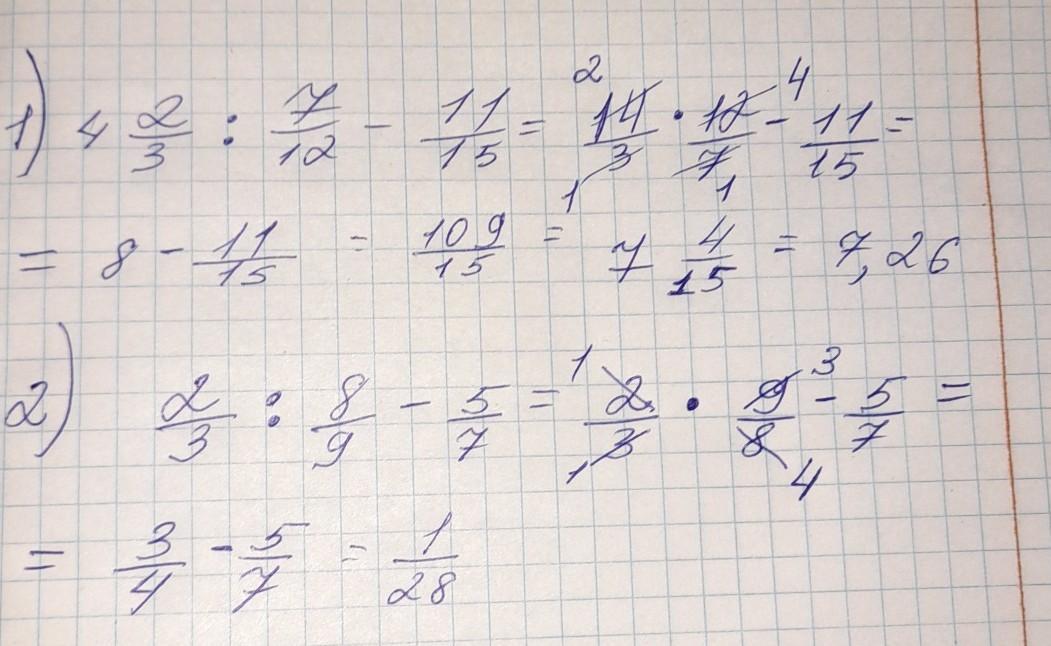 1) 4 2/3 : 7/12 - 11/15 = 14/3 · 12/7 - 11/15 =
= 8 - 11/15 = 109/15 = 7 4/15 = 7,26
2) 2/3 : 8/9 - 5/7 = 2/3 · 9/8 - 5/7 =
= 3/4 - 5/7 = 1/28